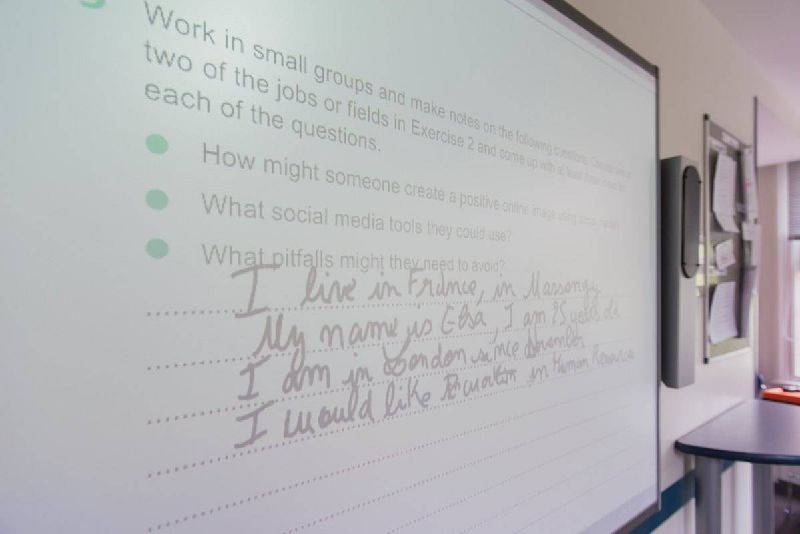 Work in small groups and make notes on the following questions. Choose
two of the jobs or fields in Exercise 2 and come up with at least three
each of the questions.
How might someone create a positive online image using
What social media tools they could use?
What pitfalls might they need to avoid?
I live in France, in
My name is Elsa, I am years old
I am in London since November
I would like in Human Resources